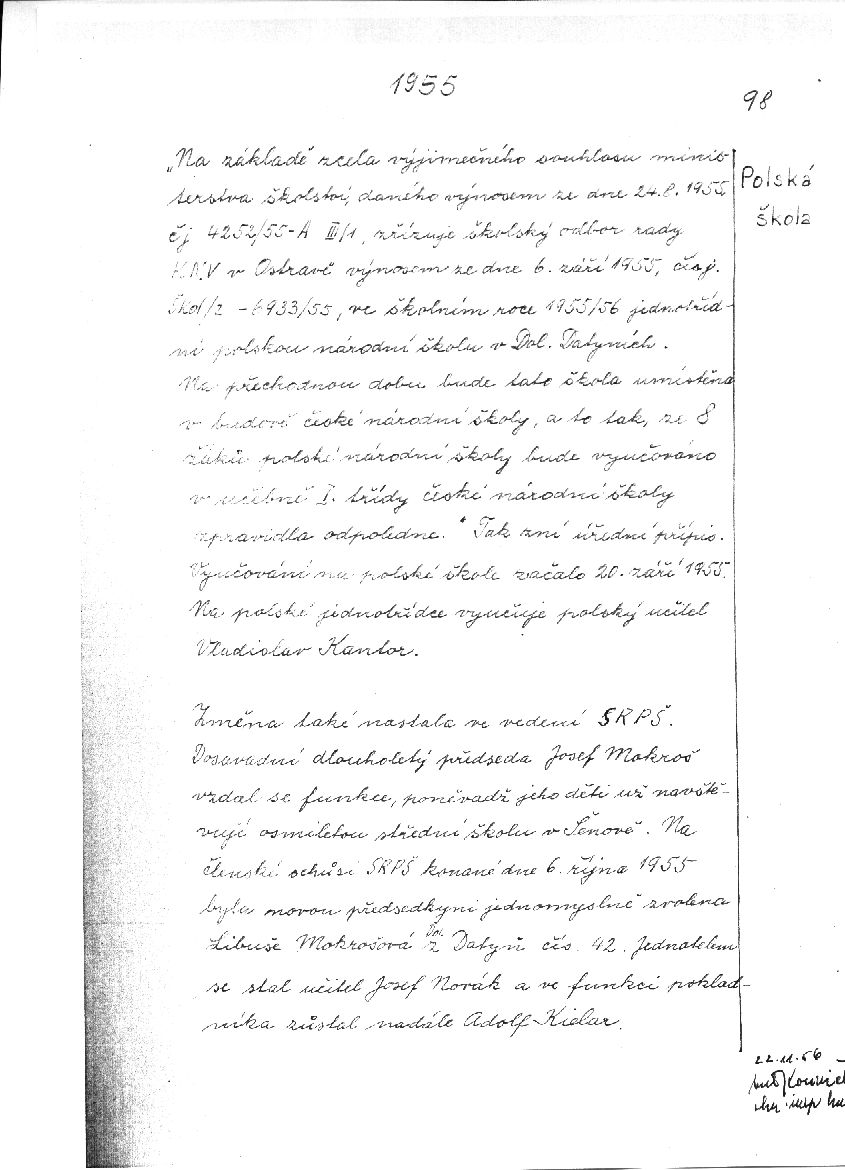 1955
98
„Na základě zcela výjimečného souhlasu minis-
terstva školství, daného výnosem ze dne 24.8.1955
čj 4252/55-A III/1, zřizuje školský odbor rady
K.N.V v Ostravě výnosem ze dne 6. září 1955, čís.j.
Škol/2 -6933/55, ve školním roce 1955/56 jednotříd-
ní polskou národní školu v Dol. Datyních.
Na přechodnou dobu bude tato škola umístěna
v budově české národní školy, a to tak, že 8
žáků polské národní školy bude vyučováno
v učebně I. třídy české národní školy
zpravidla odpoledne." Tak zní úřední přípis.
Vyučování na polské škole začalo 20. září 1955.
Na polské jednotřídce vyučuje polský učitel
Vladislav Kantor.
Polská
škola
Změna také nastala ve vedení SRPŠ.
Dosavadní dlouholetý předseda Josef Mokroš
vzdal se funkce, poněvadž jeho děti už navště-
vují osmiletou střední školu v Šenově. Na
členské schůsi SRPŠ konané dne 6. října 1955
byla novou předsedkyní jednomyslně zvolena
Libuše Mokrošová z Dol. Datyň čís. 42. Jednatelem
se stal učitel Josef Novák a ve funkci poklad-
níka zůstal nadále Adolf Kielar.
22.11.56